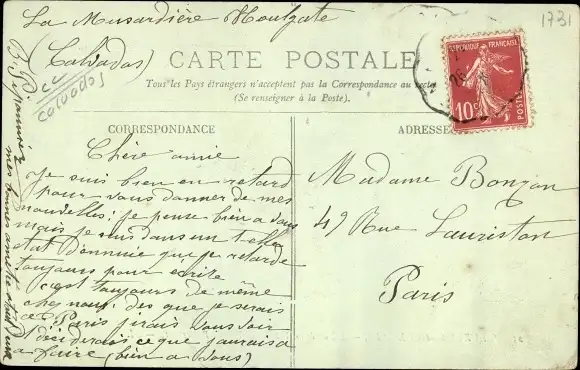 La Musardière Houlgate
(Calvados)
1731
CARTE POSTALE
Tous les Pays étrangers n'acceptent pas la Correspondance au recto
(Se renseigner à la Poste).
REPUBLIQUE FRANÇAISE
10c
POSTES
CORRESPONDANCE
ADRESSE
Chère amie
Je suis bien en retard
pour vous donner de mes
nouvelles; je pense bien a vous
mais je suis dans un tel
état d'ennuie que je retarde
toujours pour écrire
c'est toujours de même
chez nous. des que je serais
a Paris j'irais vous voir
deciderais ce que j'aurais a
a faire (bien a vous)
Madame Bonzon
49 Rue Lauriston
Paris
CC
Calvados